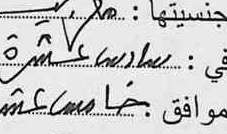 جنسيتها :
في : سادس عشرة
موافق خامس عشر